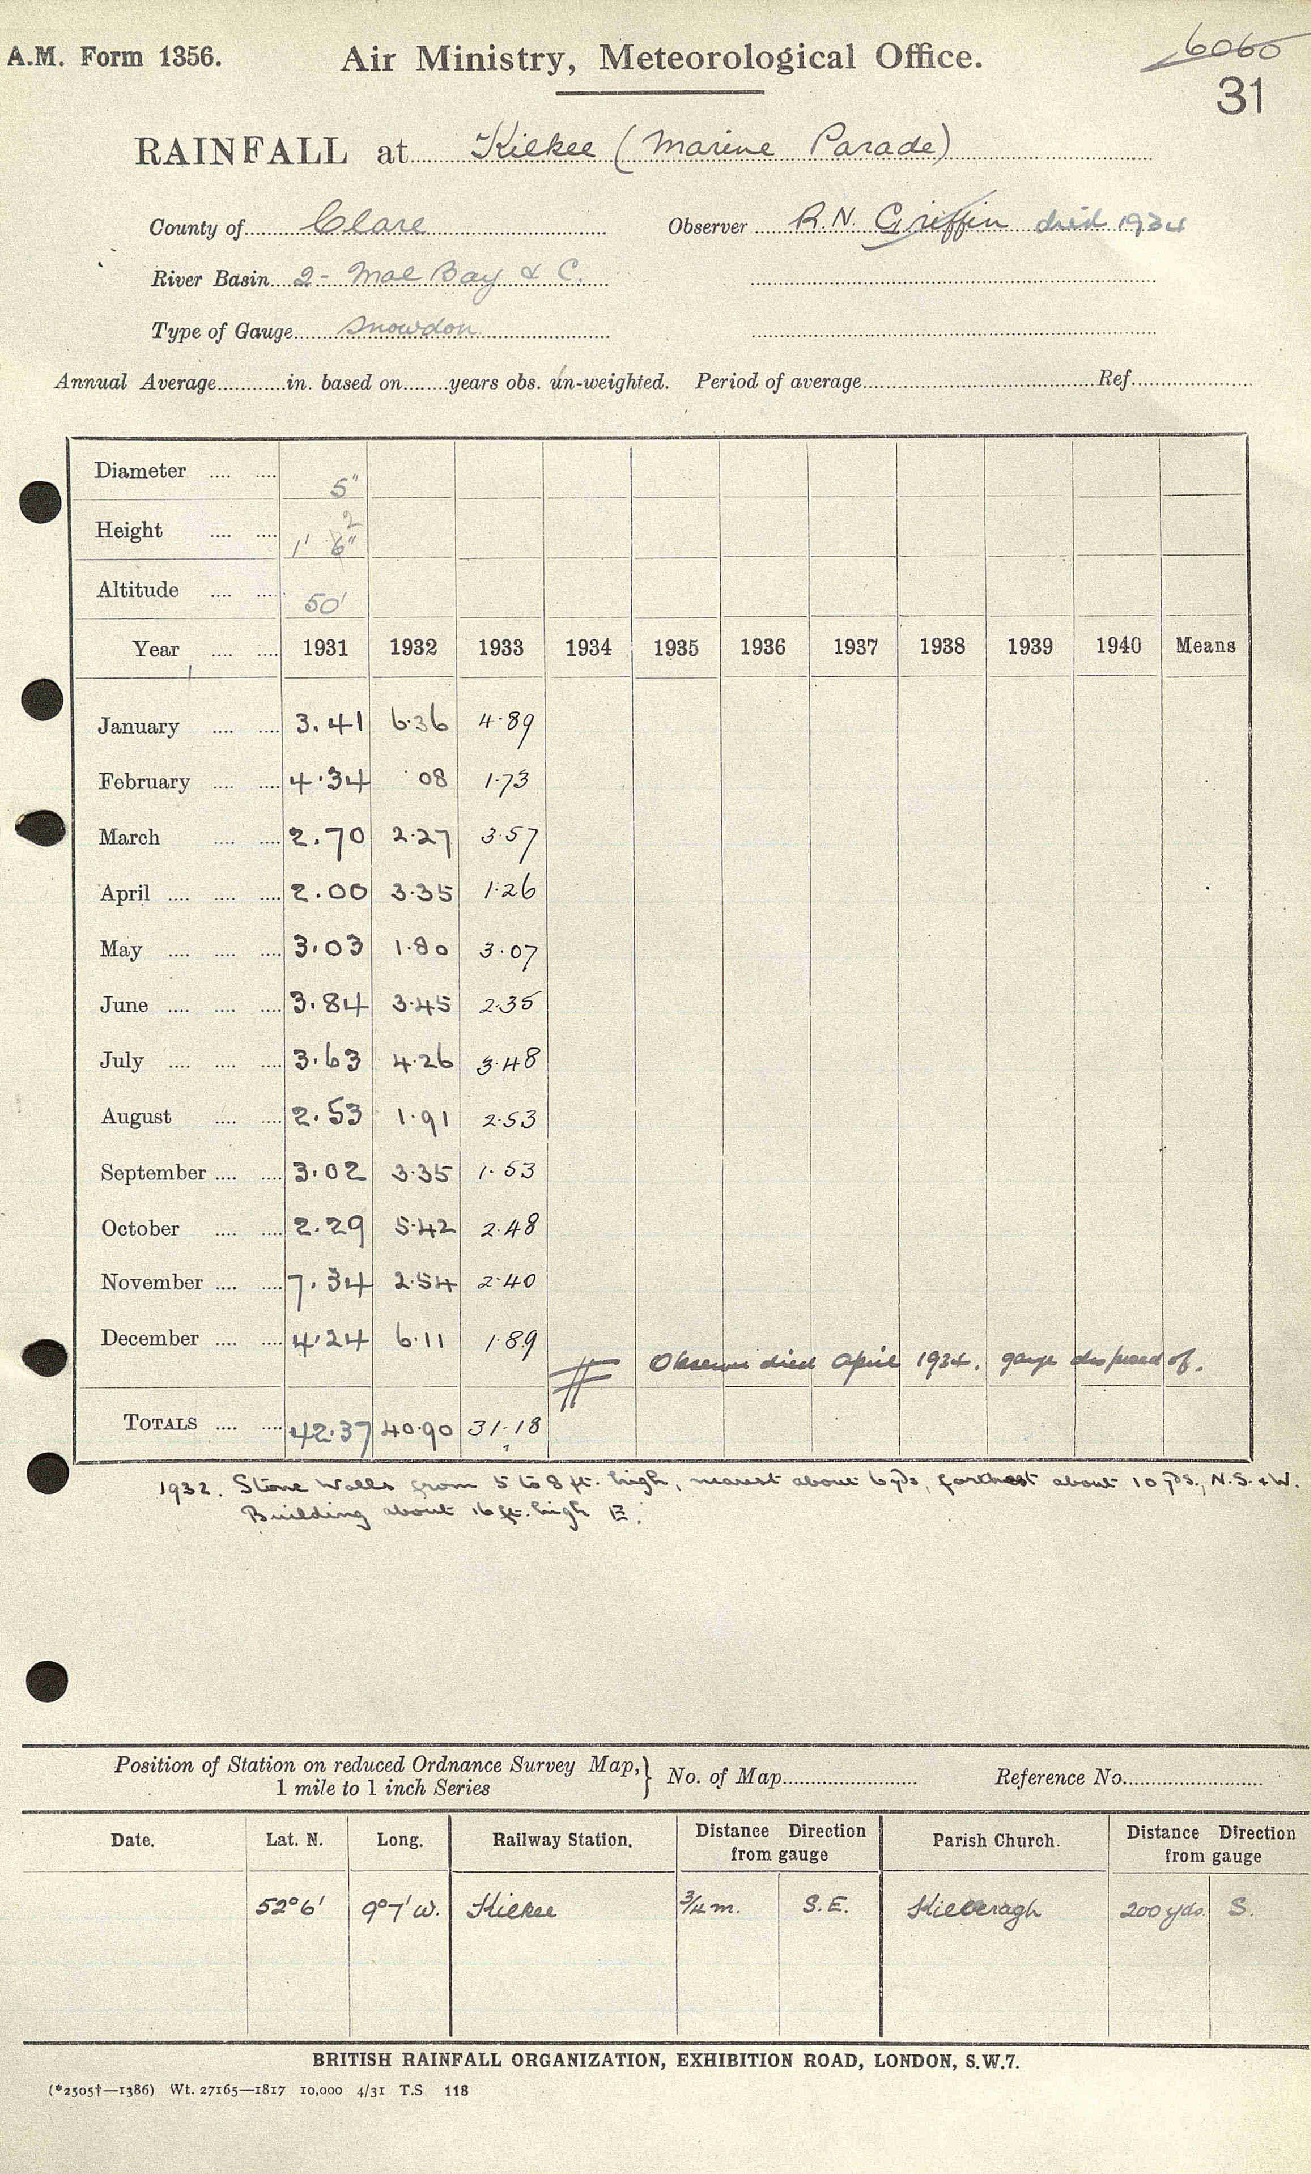 A.M. Form 1356.
Air Ministry, Meteorological Office.
6060
31
RAINFALL at Kilkee (Marine Parade)
County of Clare Observer R.N. Griffin died 1934
River Basin 2 - Mal Bay & C.
Type of Gauge Snowdon
Annual Average in. based on years obs. un-weighted. Period of average Ref.
Diameter 5"
Height 1' 6" 2
Altitude 50'
Year 1931 1932 1933 1934 1935 1936 1937 1938 1939 1940 Means
January 3.41 6.36 4.89
February 4.34 .08 1.73
March 2.70 2.27 3.57
April 2.00 3.35 1.26
May 3.03 1.80 3.07
June 3.84 3.45 2.35
July 3.63 4.26 3.48
August 2.53 1.91 2.53
September 3.02 3.35 1.53
October 2.29 5.42 2.48
November 7.34 2.54 2.40
December 4.24 6.11 1.89
Observer died April 1934. gauge disposed of.
TOTALS 42.37 40.90 31.18
1932. Stone walls from 5 to 8 ft. high, nearest about 6 yds, farthest about 10 yds., N.S. & W.
Building about 16 ft. high E.
Position of Station on reduced Ordnance Survey Map, 1 mile to 1 inch Series } No. of Map Reference No.
Date. Lat. N. Long. Railway Station. Distance Direction from gauge Parish Church. Distance Direction from gauge
52°6' 9°7' W. Kilkee 3/4 m. S.E. 200 yds. S.
BRITISH RAINFALL ORGANIZATION, EXHIBITION ROAD, LONDON, S.W.7.
(*2505†—1386) Wt. 27165—1817 10,000 4/31 T.S 118